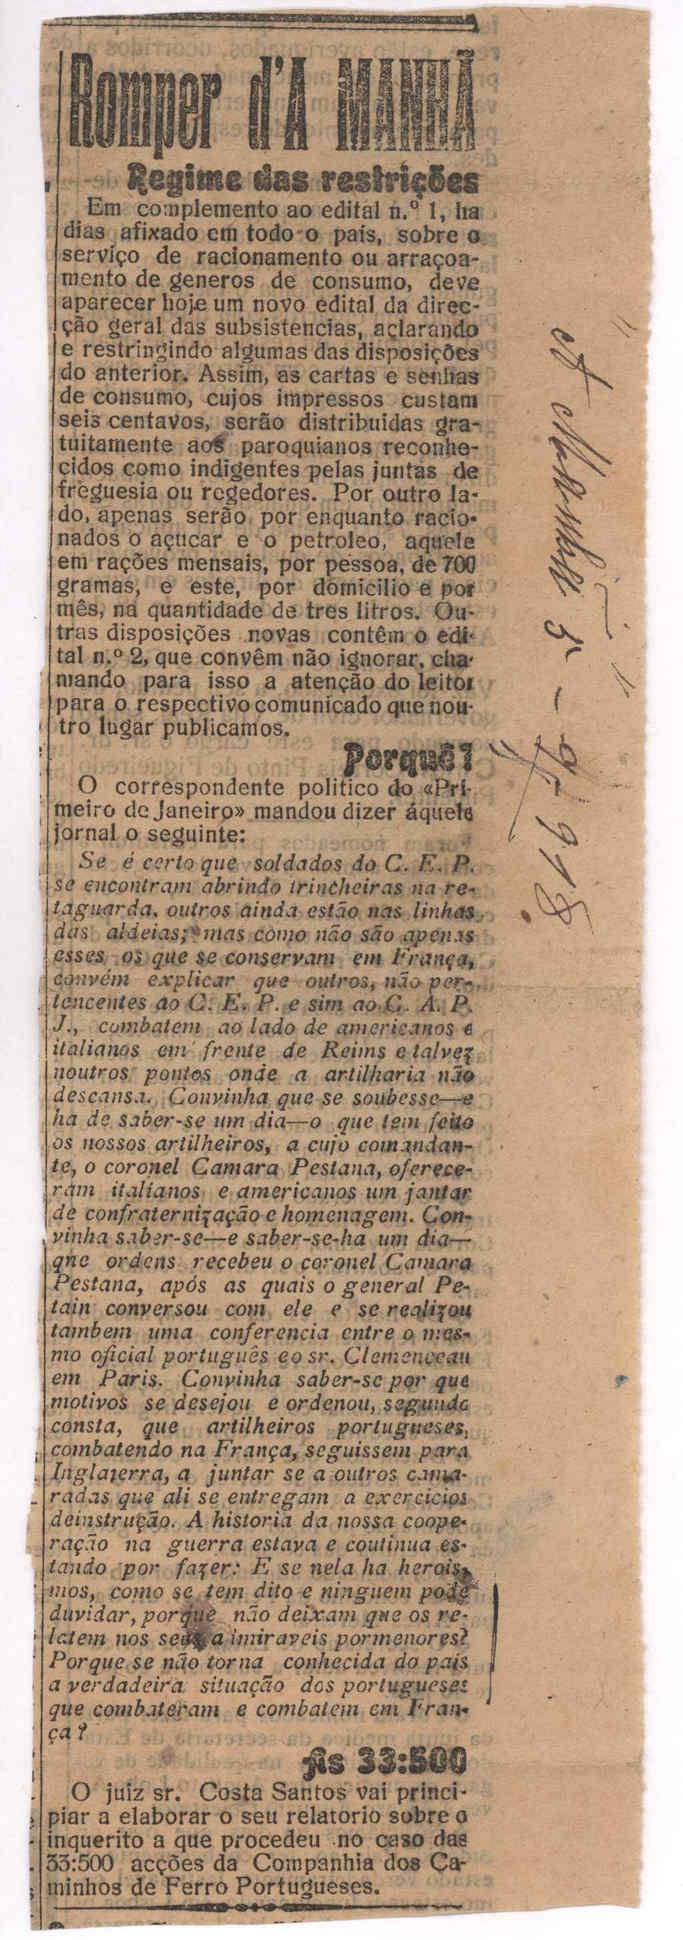 Romper d'A MANHÃ
Regime das restrições
Em complemento ao edital n.º 1, ha
dias afixado em todo o país, sobre o
serviço de racionamento ou arraçoa-
mento de generos de consumo, deve
aparecer hoje um novo edital da direc-
ção geral das subsistencias, aclarando
e restringindo algumas das disposições
do anterior. Assim, as cartas e senhas
de consumo, cujos impressos custam
seis centavos, serão distribuidas gra-
tuitamente aos paroquianos reconhe-
cidos como indigentes pelas juntas de
freguesia ou regedores. Por outro la-
do, apenas serão por enquanto racio-
nados o açucar e o petroleo, aquele
em rações mensais, por pessoa, de 700
gramas, e este, por domicilio e por
mês, na quantidade de tres litros. Ou-
tras disposições novas contêm o edi-
tal n.º 2, que convêm não ignorar, cha-
mando para isso a atenção do leitor
para o respectivo comunicado que nou-
tro lugar publicamos.
Porquê?
O correspondente politico do «Pri-
meiro de Janeiro» mandou dizer áquele
jornal o seguinte:
Se é certo que soldados do C. E. P.
se encontram abrindo trincheiras na re-
taguarda, outros ainda estão nas linhas
das aldeias; mas como não são apenas
esses os que se conservam em França,
convém explicar que outros, não per-
tencentes ao C. E. P. e sim ao C. A. P.
J., combatem ao lado de americanos e
italianos em frente de Reims e talvez
noutros pontos onde a artilharia não
descansa. Convinha que se soubesse—e
ha de saber-se um dia—o que tem feito
os nossos artilheiros, a cujo comandan-
te, o coronel Camara Pestana, oferece-
ram italianos e americanos um jantar
de confraternização e homenagem. Con-
vinha saber-se—e saber-se-ha um dia—
qne ordens recebeu o coronel Camara
Pestana, após as quais o general Pe-
tain conversou com ele e se realizou
tambem uma conferencia entre o mes-
mo oficial português e o sr. Clemenceau
em Paris. Convinha saber-se por que
motivos se desejou e ordenou, segundo
consta, que artilheiros portugueses,
combatendo na França, seguissem para
Inglaterra, a juntar se a outros cama-
radas que ali se entregam a exercicios
deinstrução. A historia da nossa coope-
ração na guerra estava e coutinua es-
tando por fazer: E se nela ha herois-
mos, como se tem dito e ninguem pode
duvidar, porque não deixam que os re-
latem nos seus a imiraveis pormenores?
Porque se não torna conhecida do país
a verdadeira situação dos portugueses
que combateram e combatem em Fran-
ça?
As 33:500
O juiz sr. Costa Santos vai princi-
piar a elaborar o seu relatorio sobre o
inquerito a que procedeu no caso das
33:500 acções da Companhia dos Ca-
minhos de Ferro Portugueses.
"A Manhã" 5-9-918